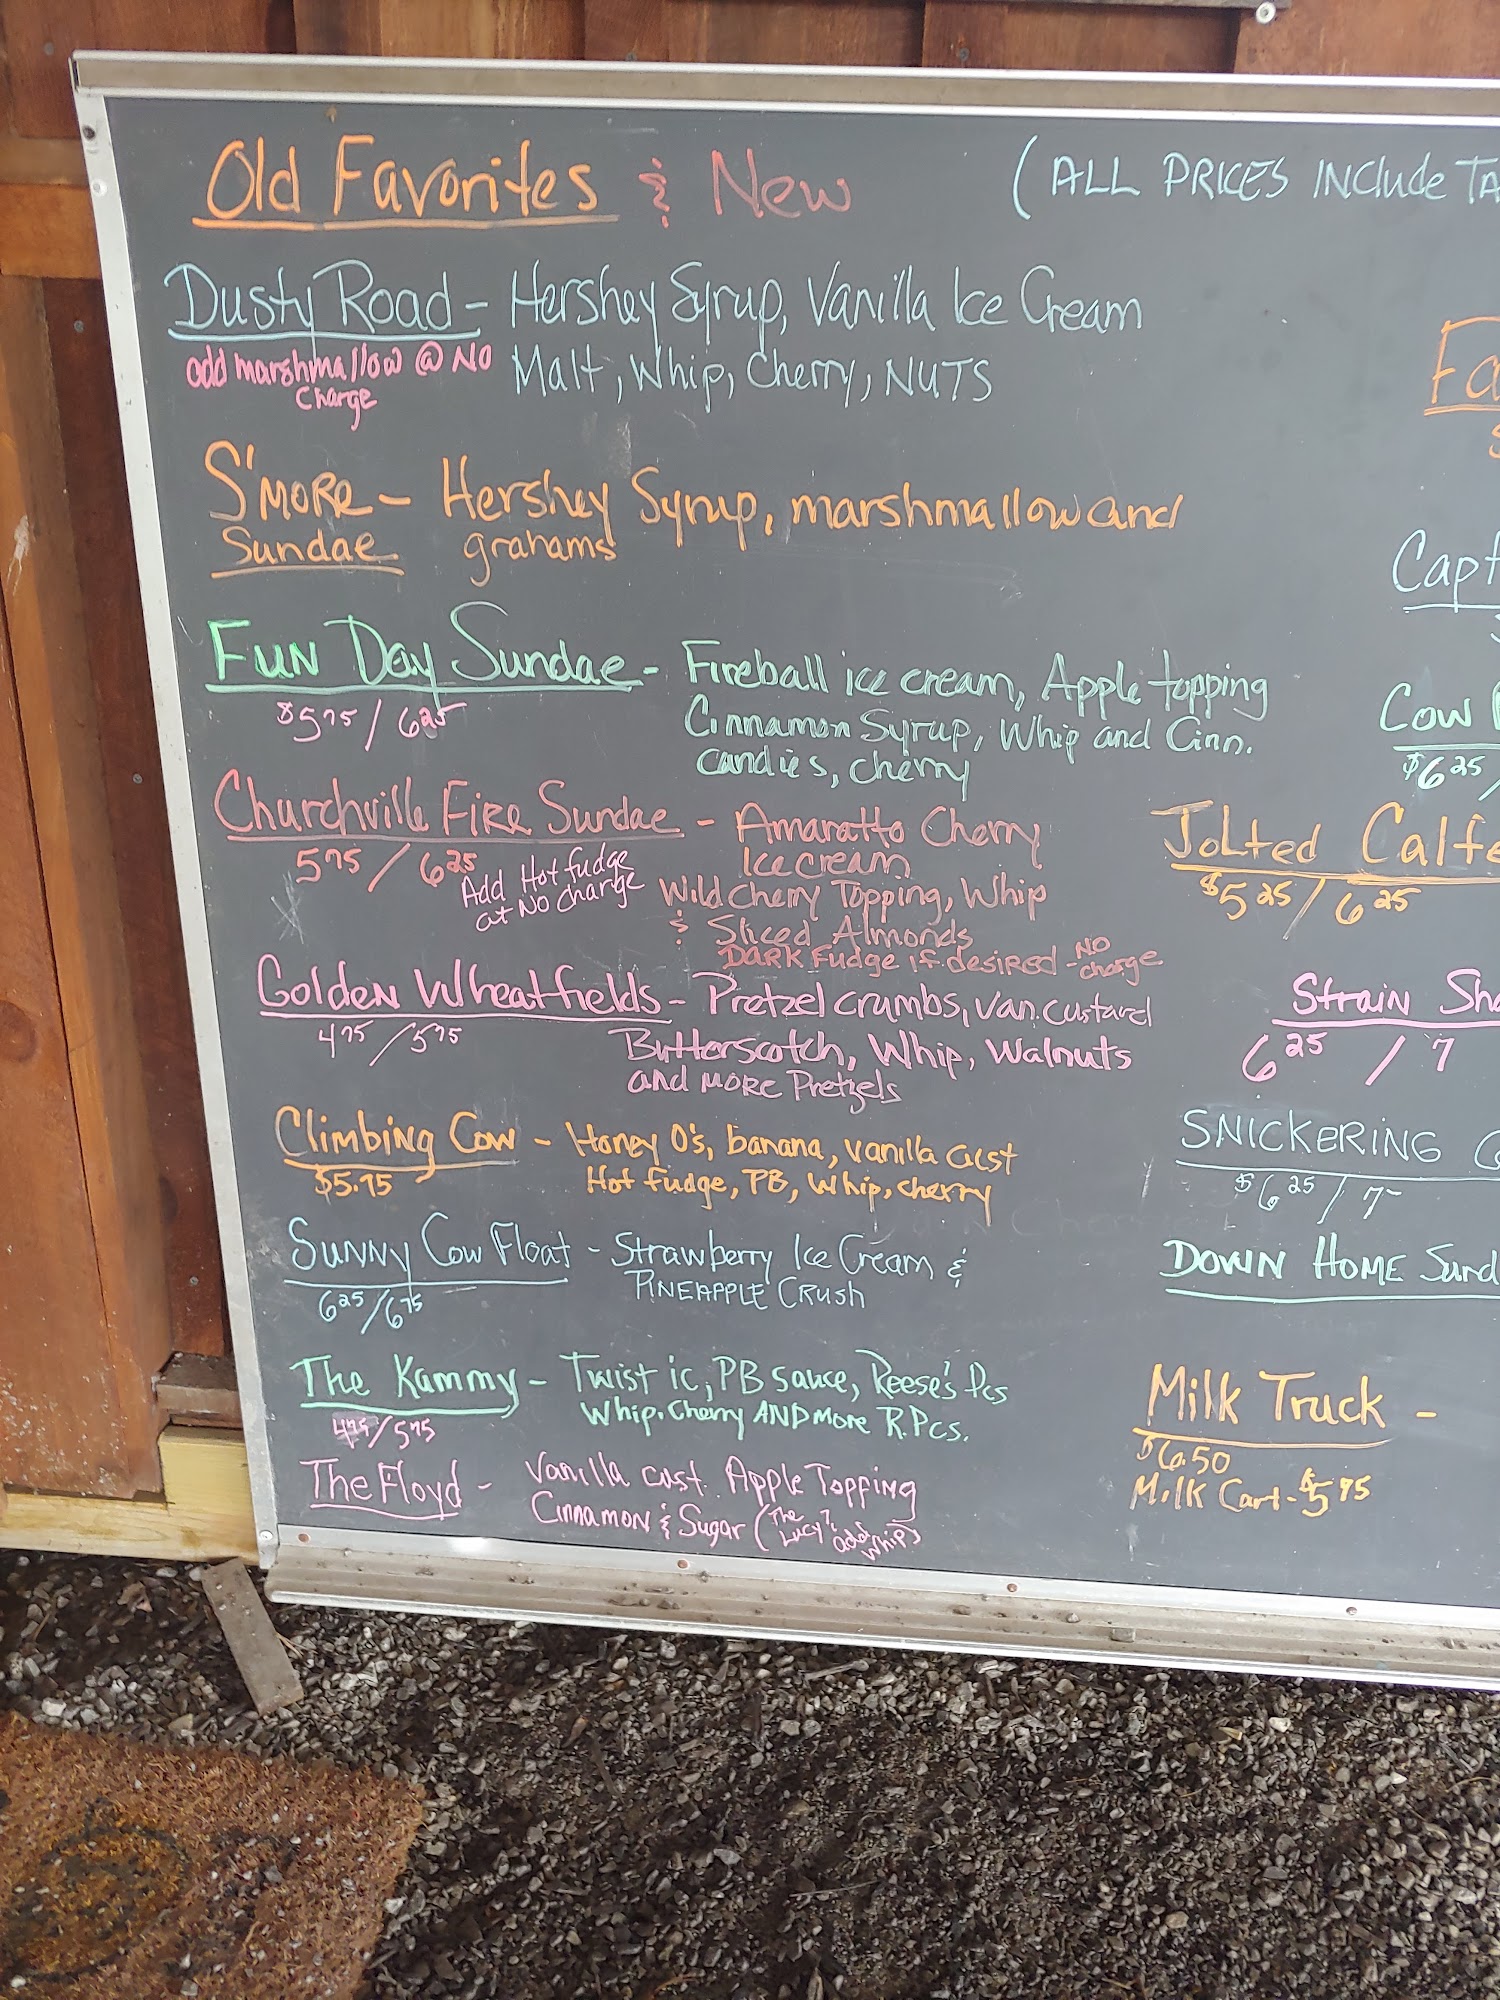 Old Favorites & New
(ALL PRICES INCLUDE TA
Dusty Road - Hershey Syrup, Vanilla Ice Cream
add marshmallow @ No Charge
Malt, Whip, Cherry, NUTS
S'MORE Sundae - Hershey Syrup, marshmallow and
grahams
Fun Day Sundae - Fireball ice cream, Apple topping
$5.75 / 6.25
Cinnamon Syrup, Whip and Cinn.
candies, cherry
Churchville Fire Sundae - Amaratto Cherry
Ice cream
5.75 / 6.25
Add Hot fudge
at No Charge
Wild Cherry Topping, Whip
& Sliced Almonds
DARK Fudge if desired - NO charge
Golden Wheatfields - Pretzel crumbs, van. custard
4.75 / 5.75
Butterscotch, Whip, Walnuts
and MORE Pretzels
Climbing Cow - Honey O's, banana, vanilla cust
$5.75
Hot fudge, PB, whip, cherry
Sunny Cow Float - Strawberry Ice Cream &
6.25 / 6.75
PINEAPPLE CRUSH
The Kammy - Twist ic, PB sauce, Reese's Pcs
4.75 / 5.75
Whip, Cherry AND more R. Pcs.
The Floyd - Vanilla cust. Apple Topping
Cinnamon & Sugar (The Lucy? add whip)
Fa
Capt
Cow
$6.25 /
Jolted Calfe
$5.25 / 6.25
Strain Sha
6.25 / 7
SNICKERING
$6.25 / 7-
DOWN HOME Sund
Milk Truck -
$6.50
Milk Cart - $5.75